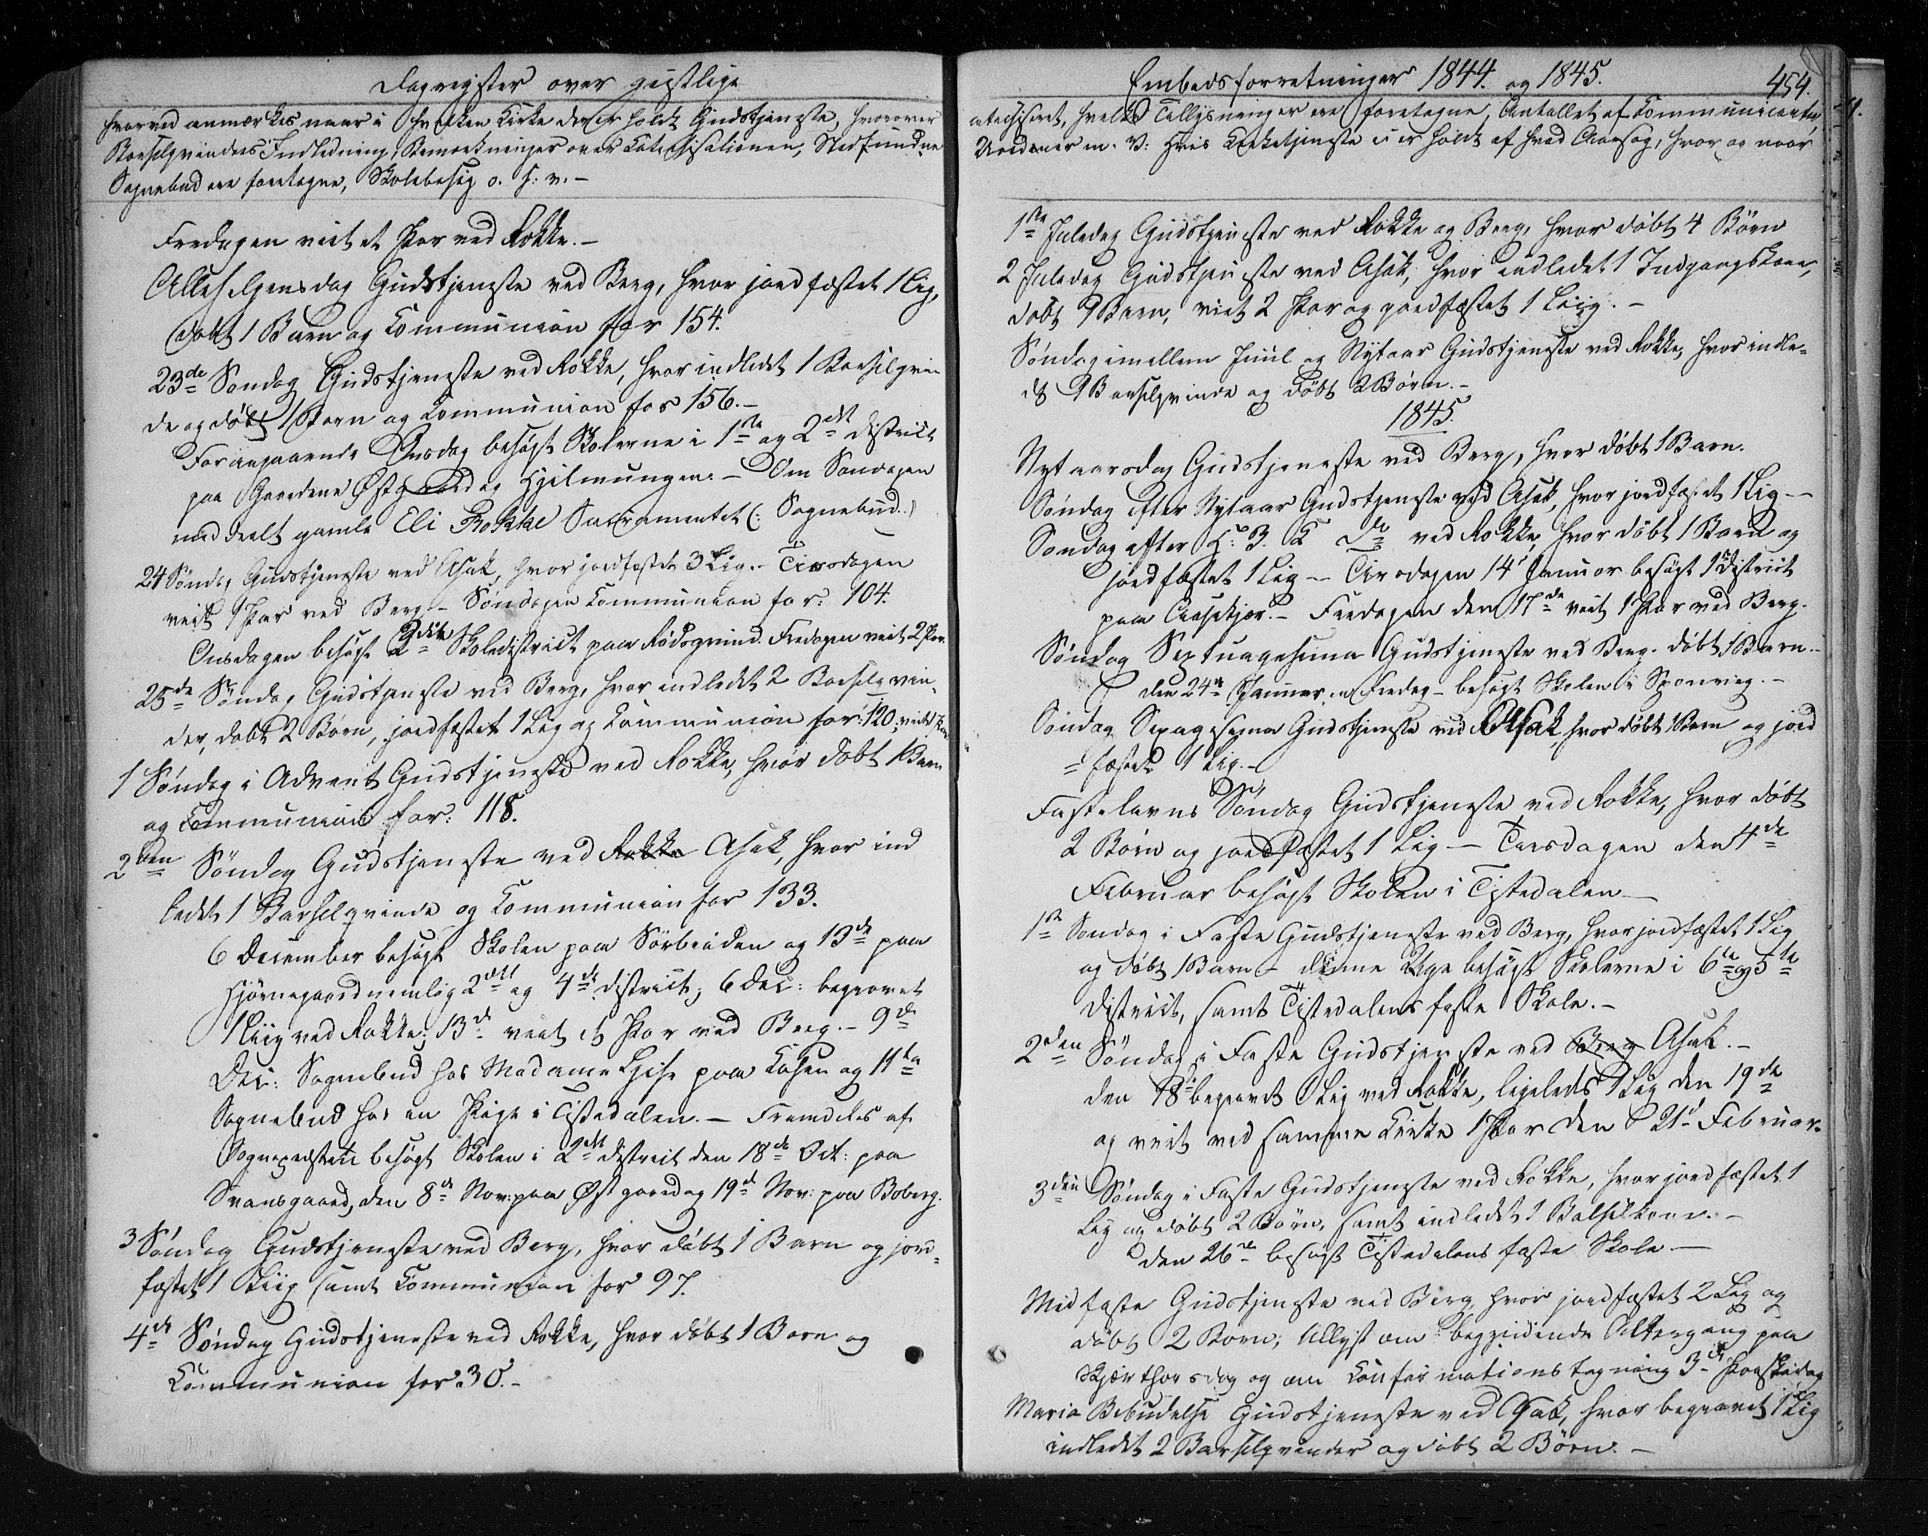 Dagregister over geistlige
hvorved anmærkes naar i hvilken Kirke der er holdt Gudstjeneste, hvorover
Barselqvinders Indledning, Bemærkninger over Catechisationen, Stedfundne
Sognebud ere foretagne, Skolebesøg o. s. v. –
Fredagen viet et Par ved Rokke. –
Allehelgensdag Gudstjeneste ved Berg, hvor jordfæstet 1 Lig,
døbt 1 Barn og Communion for 154.
23de Søndag Gudstjeneste ved Rokke, hvor indledet 1 Barselqvin
de og døbt 1 Barn og Communion for 156. –
Foregaaende Onsdag besøgt Skolerne i 1ste og 2det District
paa Gaardene Østgaard og Hjelmungen. – Om Søndagen
meddeelt gamle Eli Rokke Sacramentet (: Sognebud :)
24 Søndag Gudstjeneste ved Asak, hvor jordfæstet 3 Lig. – Tirsdagen
viet 1 Par ved Berg – Søndagen Communion for: 104.
Onsdagen besøgt 2det Skoledistrict paa Rødsgrind. Fredagen viet 2 Par
25de Søndag Gudstjeneste ved Berg, hvor indledet 2 Barselqvin-
der, døbt 2 Børn, jordfæstet 1 Lig og Communion for: 120; viet
1 Søndag i Advent Gudstjeneste ved Rokke, hvor døbt 1 Barn
og Communion for: 118.
2den Søndag Gudstjeneste ved Rokke Asak, hvor ind
ledet 1 Barselqvinde og Communion for 133.
6 December besøgt Skolen paa Sørbrøden og 13de paa
Hjørnegaard nemlig 2det og 4de District; 6 Dec: begravet
1 Liig ved Rokke; 13de viet et Par ved Berg. – 9de
Dec: Sognebud hos Madame paa og 11te
Sognebud hos en Pige i Tistedalen. – Fremdeles af
Sognepræsten besøgt Skolen i 2det District den 18de Oct: paa
Svansgaard, den 8de Nov: paa Østgaard og 19de Nov: paa Boberg.
3 Søndag Gudstjeneste ved Berg, hvor døbt 1 Barn og jord-
fæstet 1 Liig samt Communion for 97.
4de Søndag Gudstjeneste ved Rokke, hvor døbt 1 Barn og
Communion for: 30. –
Embedsforretninger 1844. og 1845. 454.
atechiseret, hvilke Tillysninger ere foretagne, Antallet af Communicanter
Uordener m. v. Hvis Kirketjeneste ei er holdt af hvad Aarsag, hvor og naar
1ste Juledag Gudstjeneste ved Rokke og Berg, hvor døbt 4 Børn
2 Juledag Gudstjeneste ved Asak, hvor indledet 1 Indgangskone,
døbt 1 Barn, viet 2 Par og jordfæstet 1 Liig. –
Søndag imellem Juul og Nytaar Gudstjeneste ved Rokke, hvor indle-
dt 1 Barselqvinde og døbt 2 Børn. –
1845.
Nytaarsdag Gudstjeneste ved Berg, hvor døbt 1 Barn.
Søndag efter Nytaar Gudstjeneste ved Asak, hvor jordfæstet 1 Lig –
Søndag efter H. 3. K. Do ved Rokke, hvor døbt 1 Barn og
jordfæstet 1 Lig – Tirsdagen 14de Januar besøgt 1 District
paa – Fredagen den 17de viet 1 Par ved Berg.
Søndag Septuagesima Gudstjeneste ved Berg. døbt 1 Barn. –
den 24de Januar, en Fredag – besøgt Skolen i Sponvig. –
Søndag Sexagesima Gudstjeneste ved Asak, hvor døbt 1 Barn og jord
= fæstet 1 Lig. –
Fastelavns Søndag Gudstjeneste ved Rokke, hvor døbt
2 Børn og jordfæstet 1 Lig – Tirsdagen den 4de
Februar besøgt Skolen i Tistedalen –
1ste Søndag i Faste Gudstjeneste ved Berg, hvor jordfæstet 1 Lig
og døbt 1 Barn – denne Uge besøgt Skolerne i 6te og 5te
District, samt Tistedalens faste Skole. –
2den Søndag i Faste Gudstjeneste ved Berg Asak. –
den 18de begravet 1 Lig ved Rokke, ligeledes 1 Lig den 19de
og viet ved samme Kirke 1 Par den 21de Februar.
3die Søndag i Faste Gudstjeneste ved Rokke, hvor jordfæstet 1
Lig og døbt 2 Børn, samt indledet 1 Barselkone. –
den 26de besøgt Tistedalens faste Skole –
Midfaste Gudstjeneste ved Berg, hvor jordfæstet 2 Lig og
døbt 2 Børn; tillyst om begyndende Altergang paa
Skjærthorsdag og om Confirmationstegning 3de Paaskedag
Maria Bebudelse Gudstjeneste ved Asak, hvor begravet 1 Lig
indledet 2 Barselqvinder og døbt 2 Børn. –